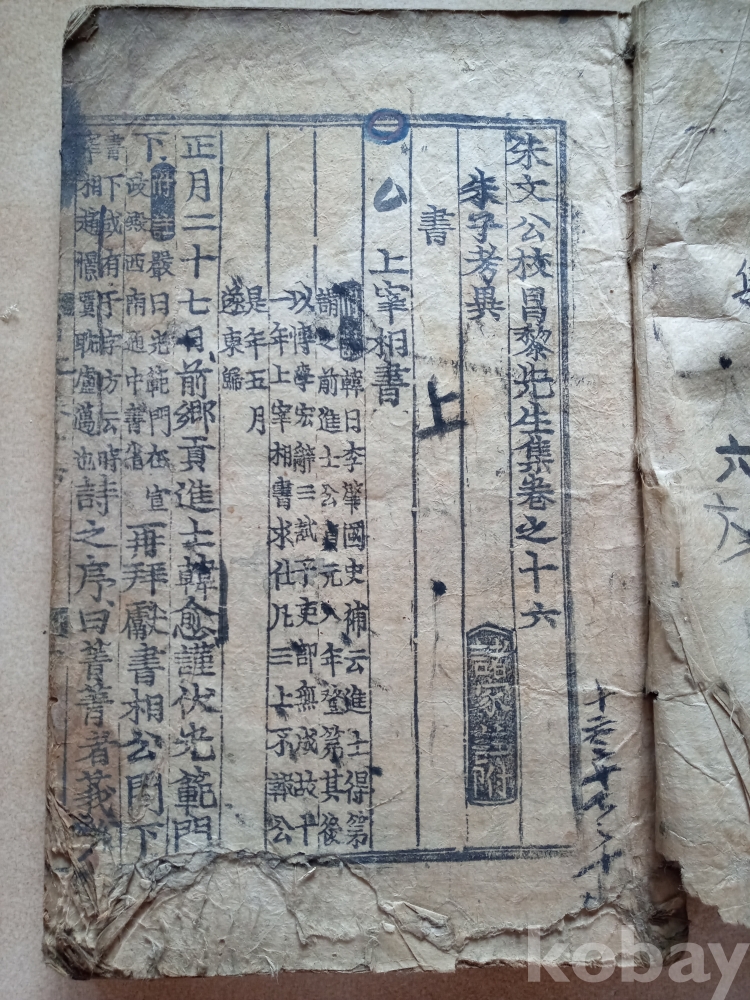 朱文公校昌黎先生集卷之十六
朱子考異
書
上
上宰相書
韓曰李肇國史補云進士得第
謂之前進士公貞元八年登第其後
以博學宏辭三試于吏部無成故十
一年上宰相書求仕凡三上不報公
是年五月
遂東歸
正月二十七日前鄉貢進士韓愈謹伏光範門
下
嚴曰光範門在宣
政殿西南通中書省
再拜獻書相公閤下
書下或有于字方云時
宰相趙憬賈耽盧邁也
詩之序曰菁菁者莪
六
kobay